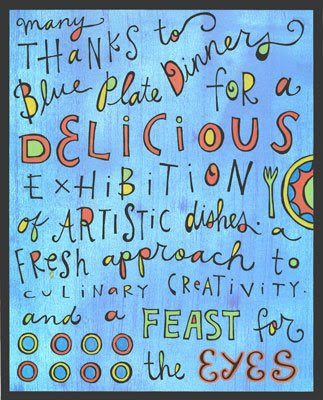 many
THANKS to
Blue Plate Dinners
FOR a
DELICIOUS
EXHiBiTiON
of ARTISTIC dishes. a
FRESH approach to
CULINARY CReATiViTY.
and a FEAST for
the EYES